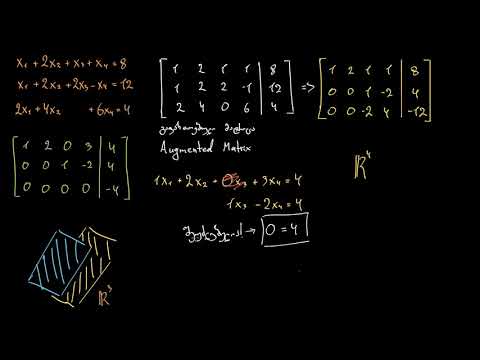 x₁ + 2x₂ + x₃ + x₄ = 8
x₁ + 2x₂ + 2x₃ - x₄ = 12
2x₁ + 4x₂ + 6x₄ = 4
1 2 1 1 | 8
1 2 2 -1 | 12
2 4 0 6 | 4
=>
1 2 1 1 | 8
0 0 1 -2 | 4
0 0 -2 4 | -12
გაფართოებული მატრიცა
Augmented Matrix
1 2 0 3 | 4
0 0 1 -2 | 4
0 0 0 0 | -4
1x₁ + 2x₂ + 0x₃ + 3x₄ = 4
1x₃ - 2x₄ = 4
→ 0 = 4
ℝ⁴
ℝ³